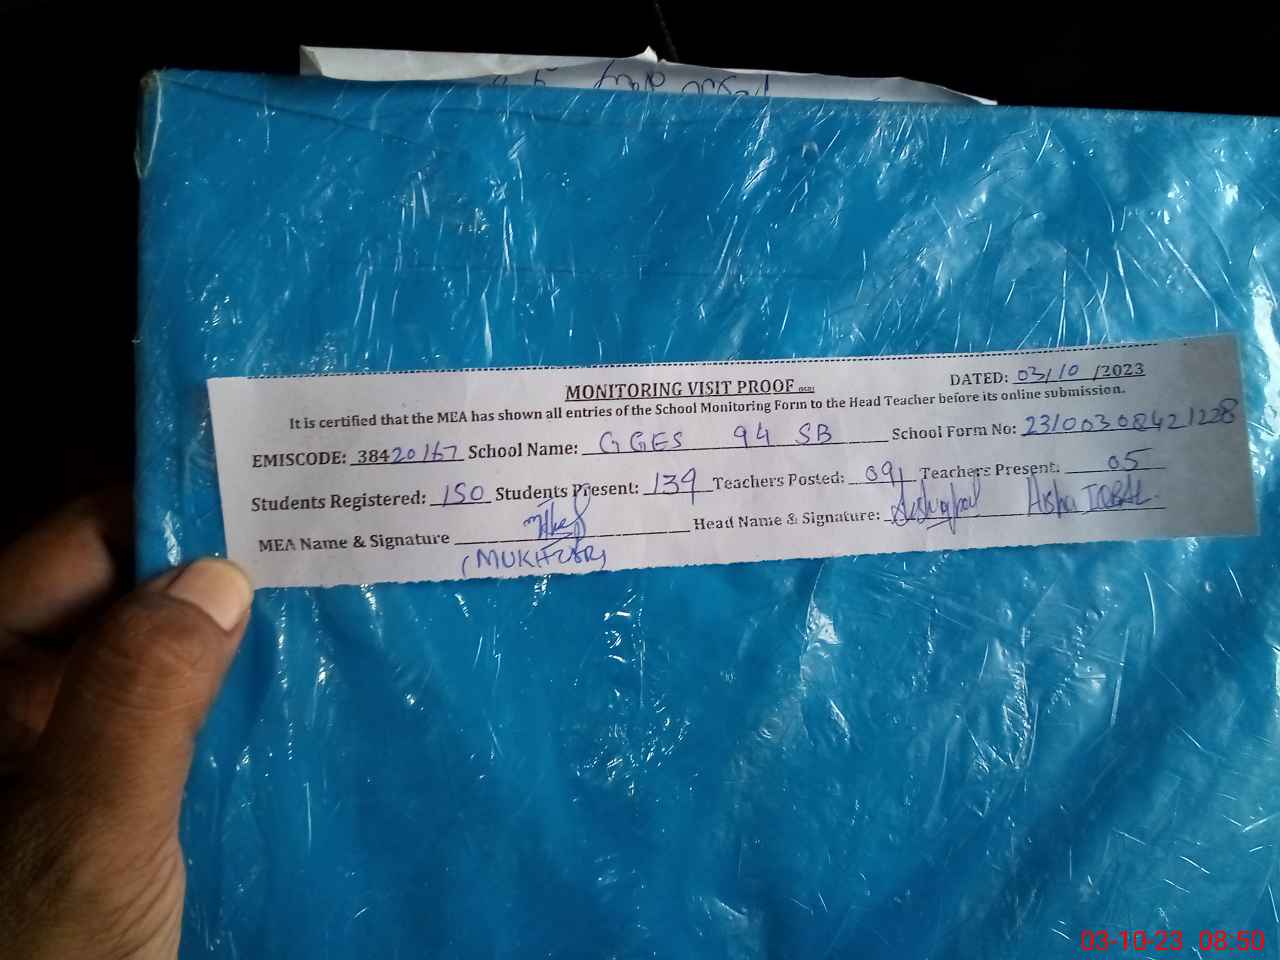 MONITORING VISIT PROOF
DATED: 03/10/2023
It is certified that the MEA has shown all entries of the School Monitoring Form to the Head Teacher before its online submission.
EMISCODE: 38420167 School Name: GGES 94 SB School Form No: 23100308421228
Students Registered: 150 Students Present: 139 Teachers Posted: 09 Teachers Present: 05
MEA Name & Signature Head Name & Signature: Aisha IQBAL
03-10-23 08:50